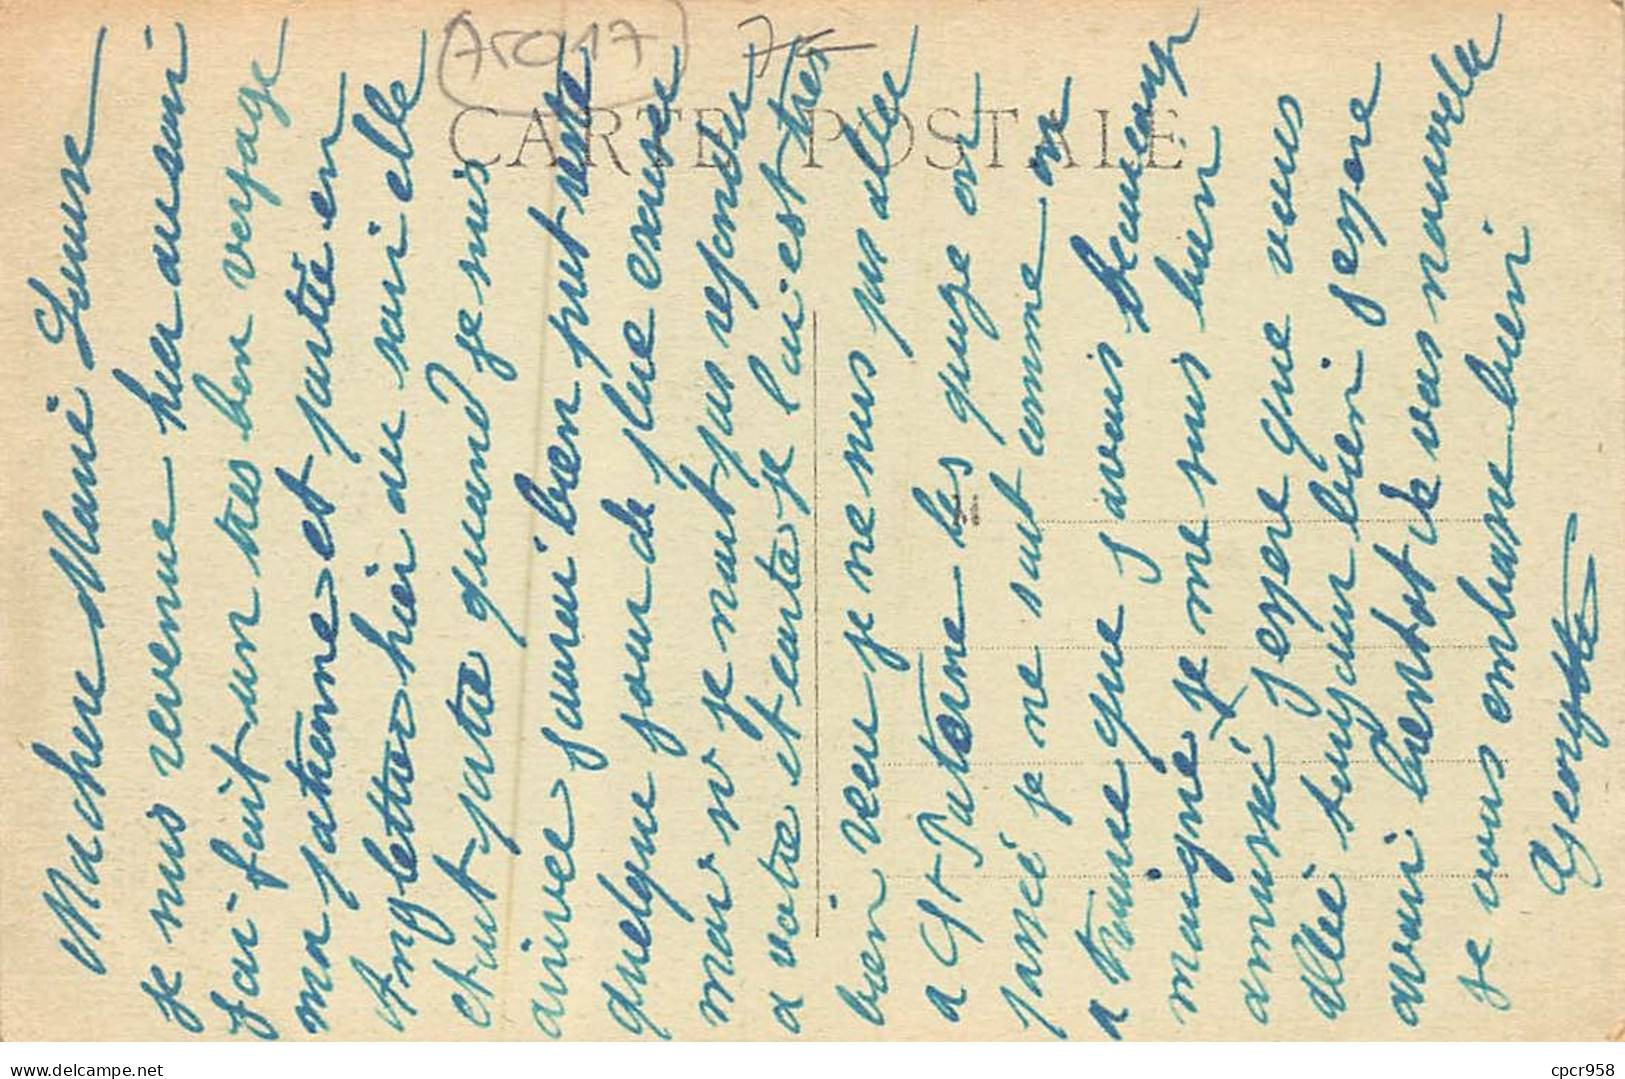 (75017) 75
CARTE POSTALE
Ma chere Mamé Louise
je suis revenue hier au soir
jai fait un tres bon voyage
ma patronne et partie en
Angleterre hier au soir elle
etait parte quand je suis
arrivee jaurai bien put reste
quelque jour de plue excuse
moi si je nait pas repondu
a votre et carte je lui est tres
bien recu je ne suis pas allee
a St Paterne les quize on
passé je ne sait comme on
a trouve que javais beaucoup
maigrie je me suis bien
amusé jespere que vous
allé toujour bien jespere
avoir bientot de vos nouvelle
je vous embrasse bien
Georgette
Delcampe.net
cpcr958